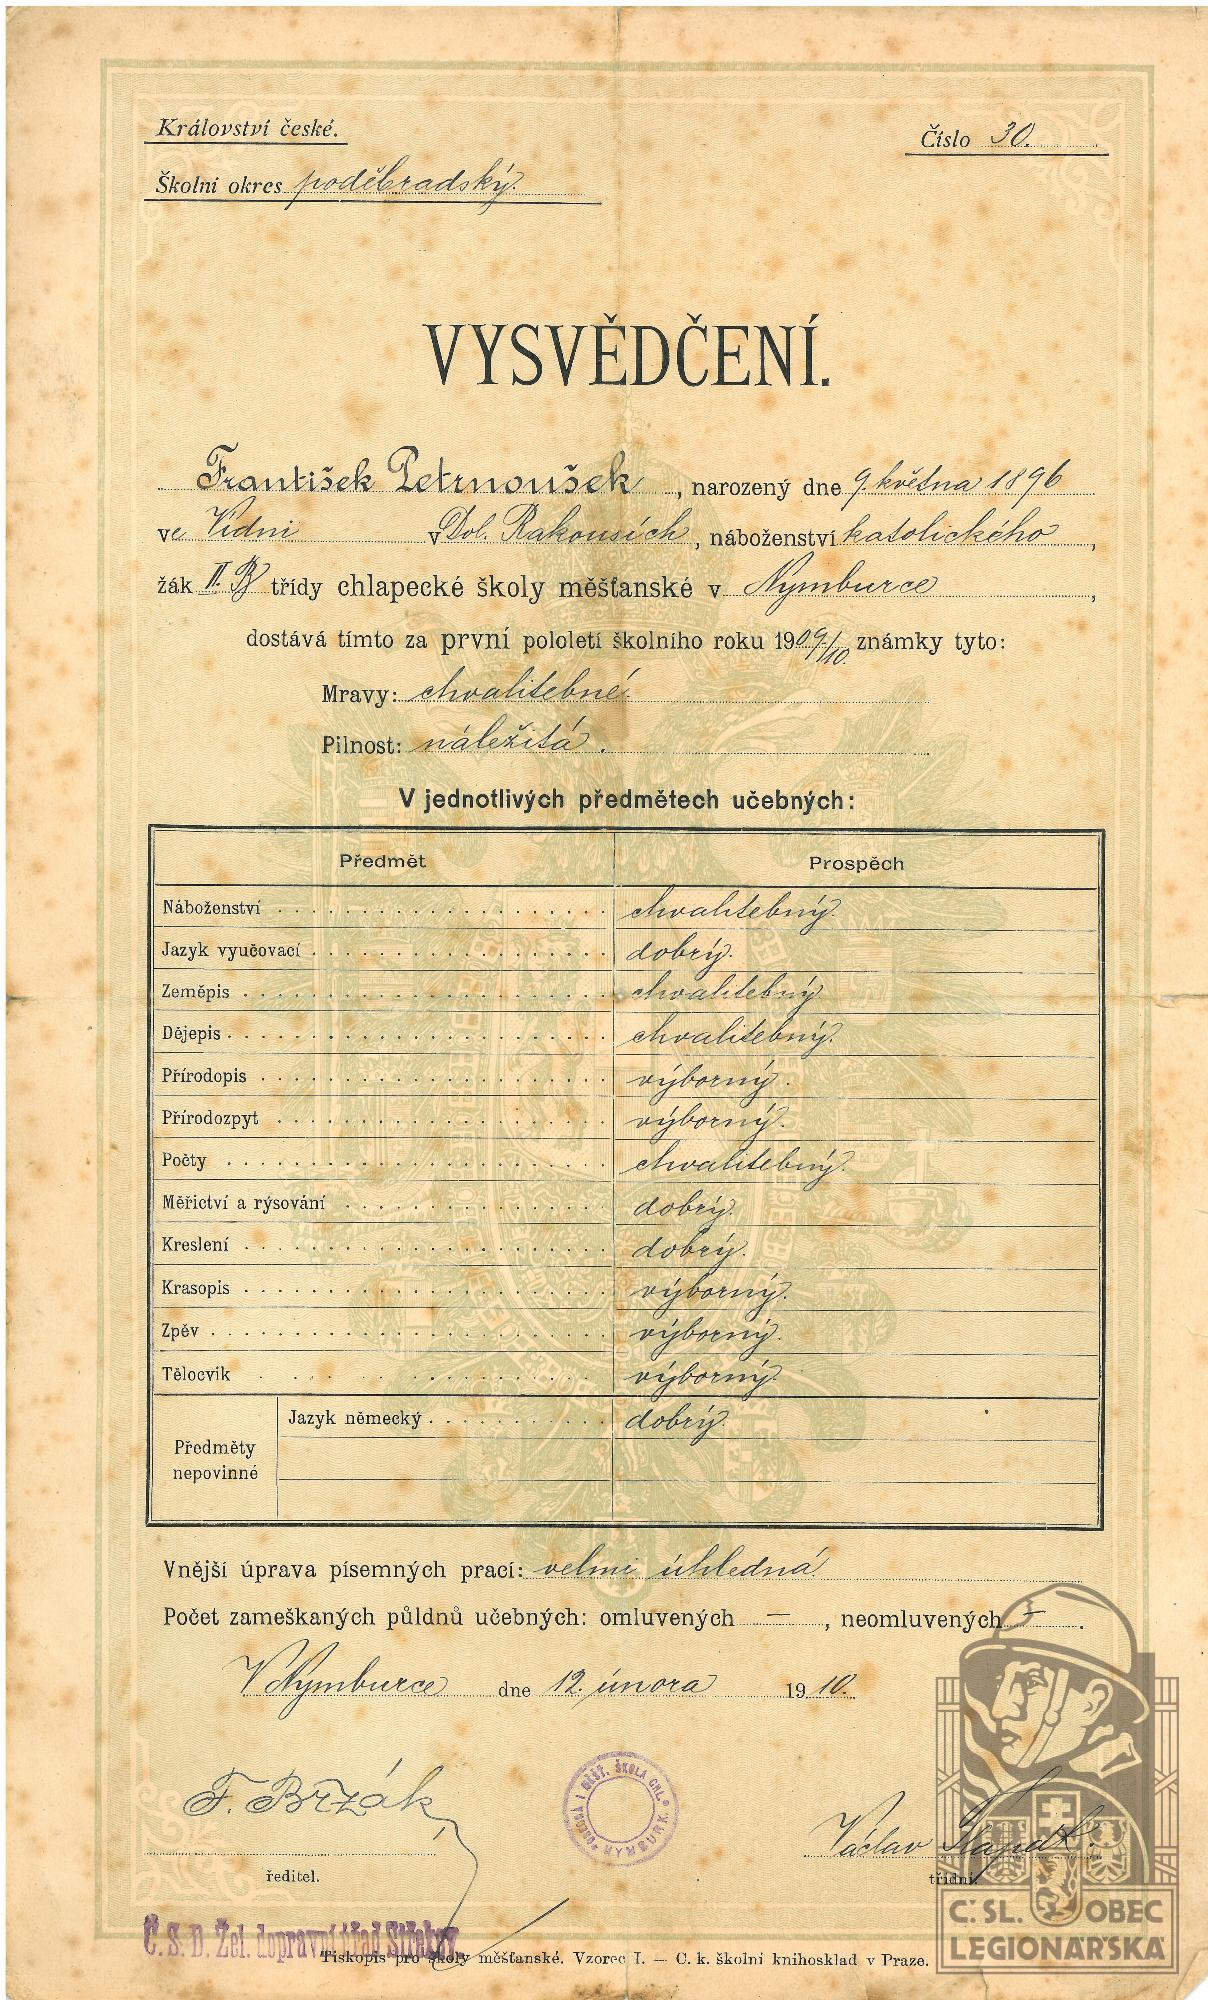 Království české.
Číslo 30.
Školní okres poděbradský.
VYSVĚDČENÍ.
František Petrnoušek, narozený dne 9. května 1896
ve Vídni v Dol. Rakousích, náboženství katolického,
žák II. B třídy chlapecké školy měšťanské v Nymburce,
dostává tímto za první pololetí školního roku 1909/10. známky tyto:
Mravy: chvalitebné.
Pilnost: náležitá.
V jednotlivých předmětech učebných:
Předmět Prospěch
Náboženství chvalitebný.
Jazyk vyučovací dobrý.
Zeměpis chvalitebný
Dějepis chvalitebný.
Přírodopis výborný.
Přírodozpyt výborný.
Počty chvalitebný.
Měřictví a rýsování dobrý.
Kreslení dobrý.
Krasopis výborný.
Zpěv výborný.
Tělocvik výborný.
Předměty nepovinné
Jazyk německý dobrý.
Vnější úprava písemných prací: velmi úhledná.
Počet zameškaných půldnů učebných: omluvených —, neomluvených —.
V Nymburce dne 12. února 1910.
F. Brzák,
ředitel.
OBECNÁ I MĚŠŤ. ŠKOLA CHL. NYMBURK.
Václav
třídní.
Č. S. D. Žel. dopravní úřad
Tiskopis pro školy měšťanské. Vzorec I. — C. k. školní knihosklad v Praze.
Č. SL. OBEC
LEGIONÁŘSKÁ